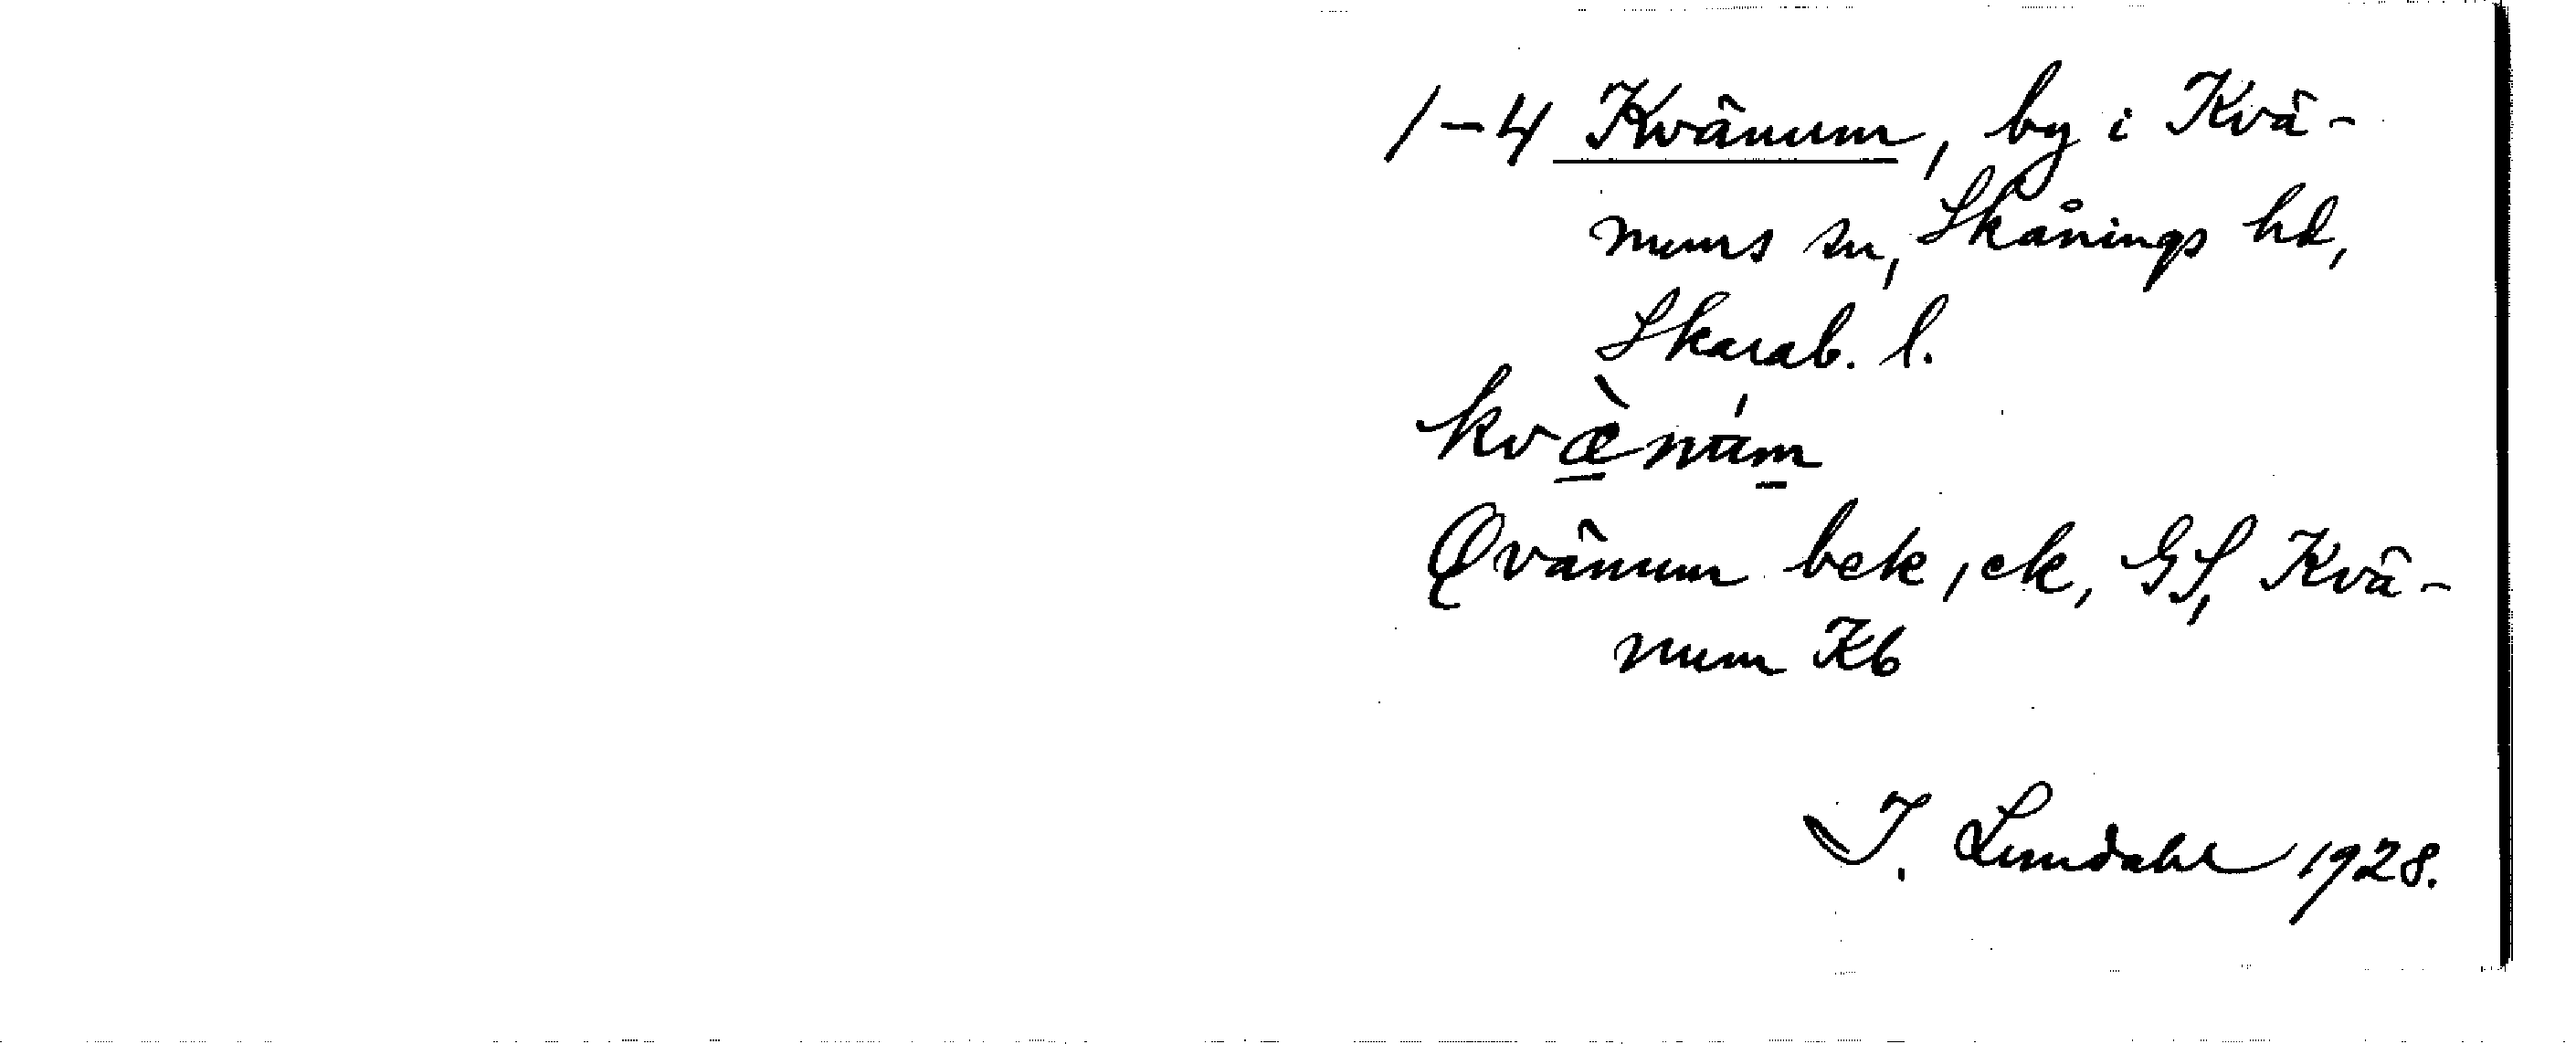 1-4 Kvänum, by i Kvä-
nums sn, Skånings hd,
Skarab. l.
kvæ̀num
Qvänum bek, ek, GS, Kvä-
num Kb
I. Lundahl 1928.